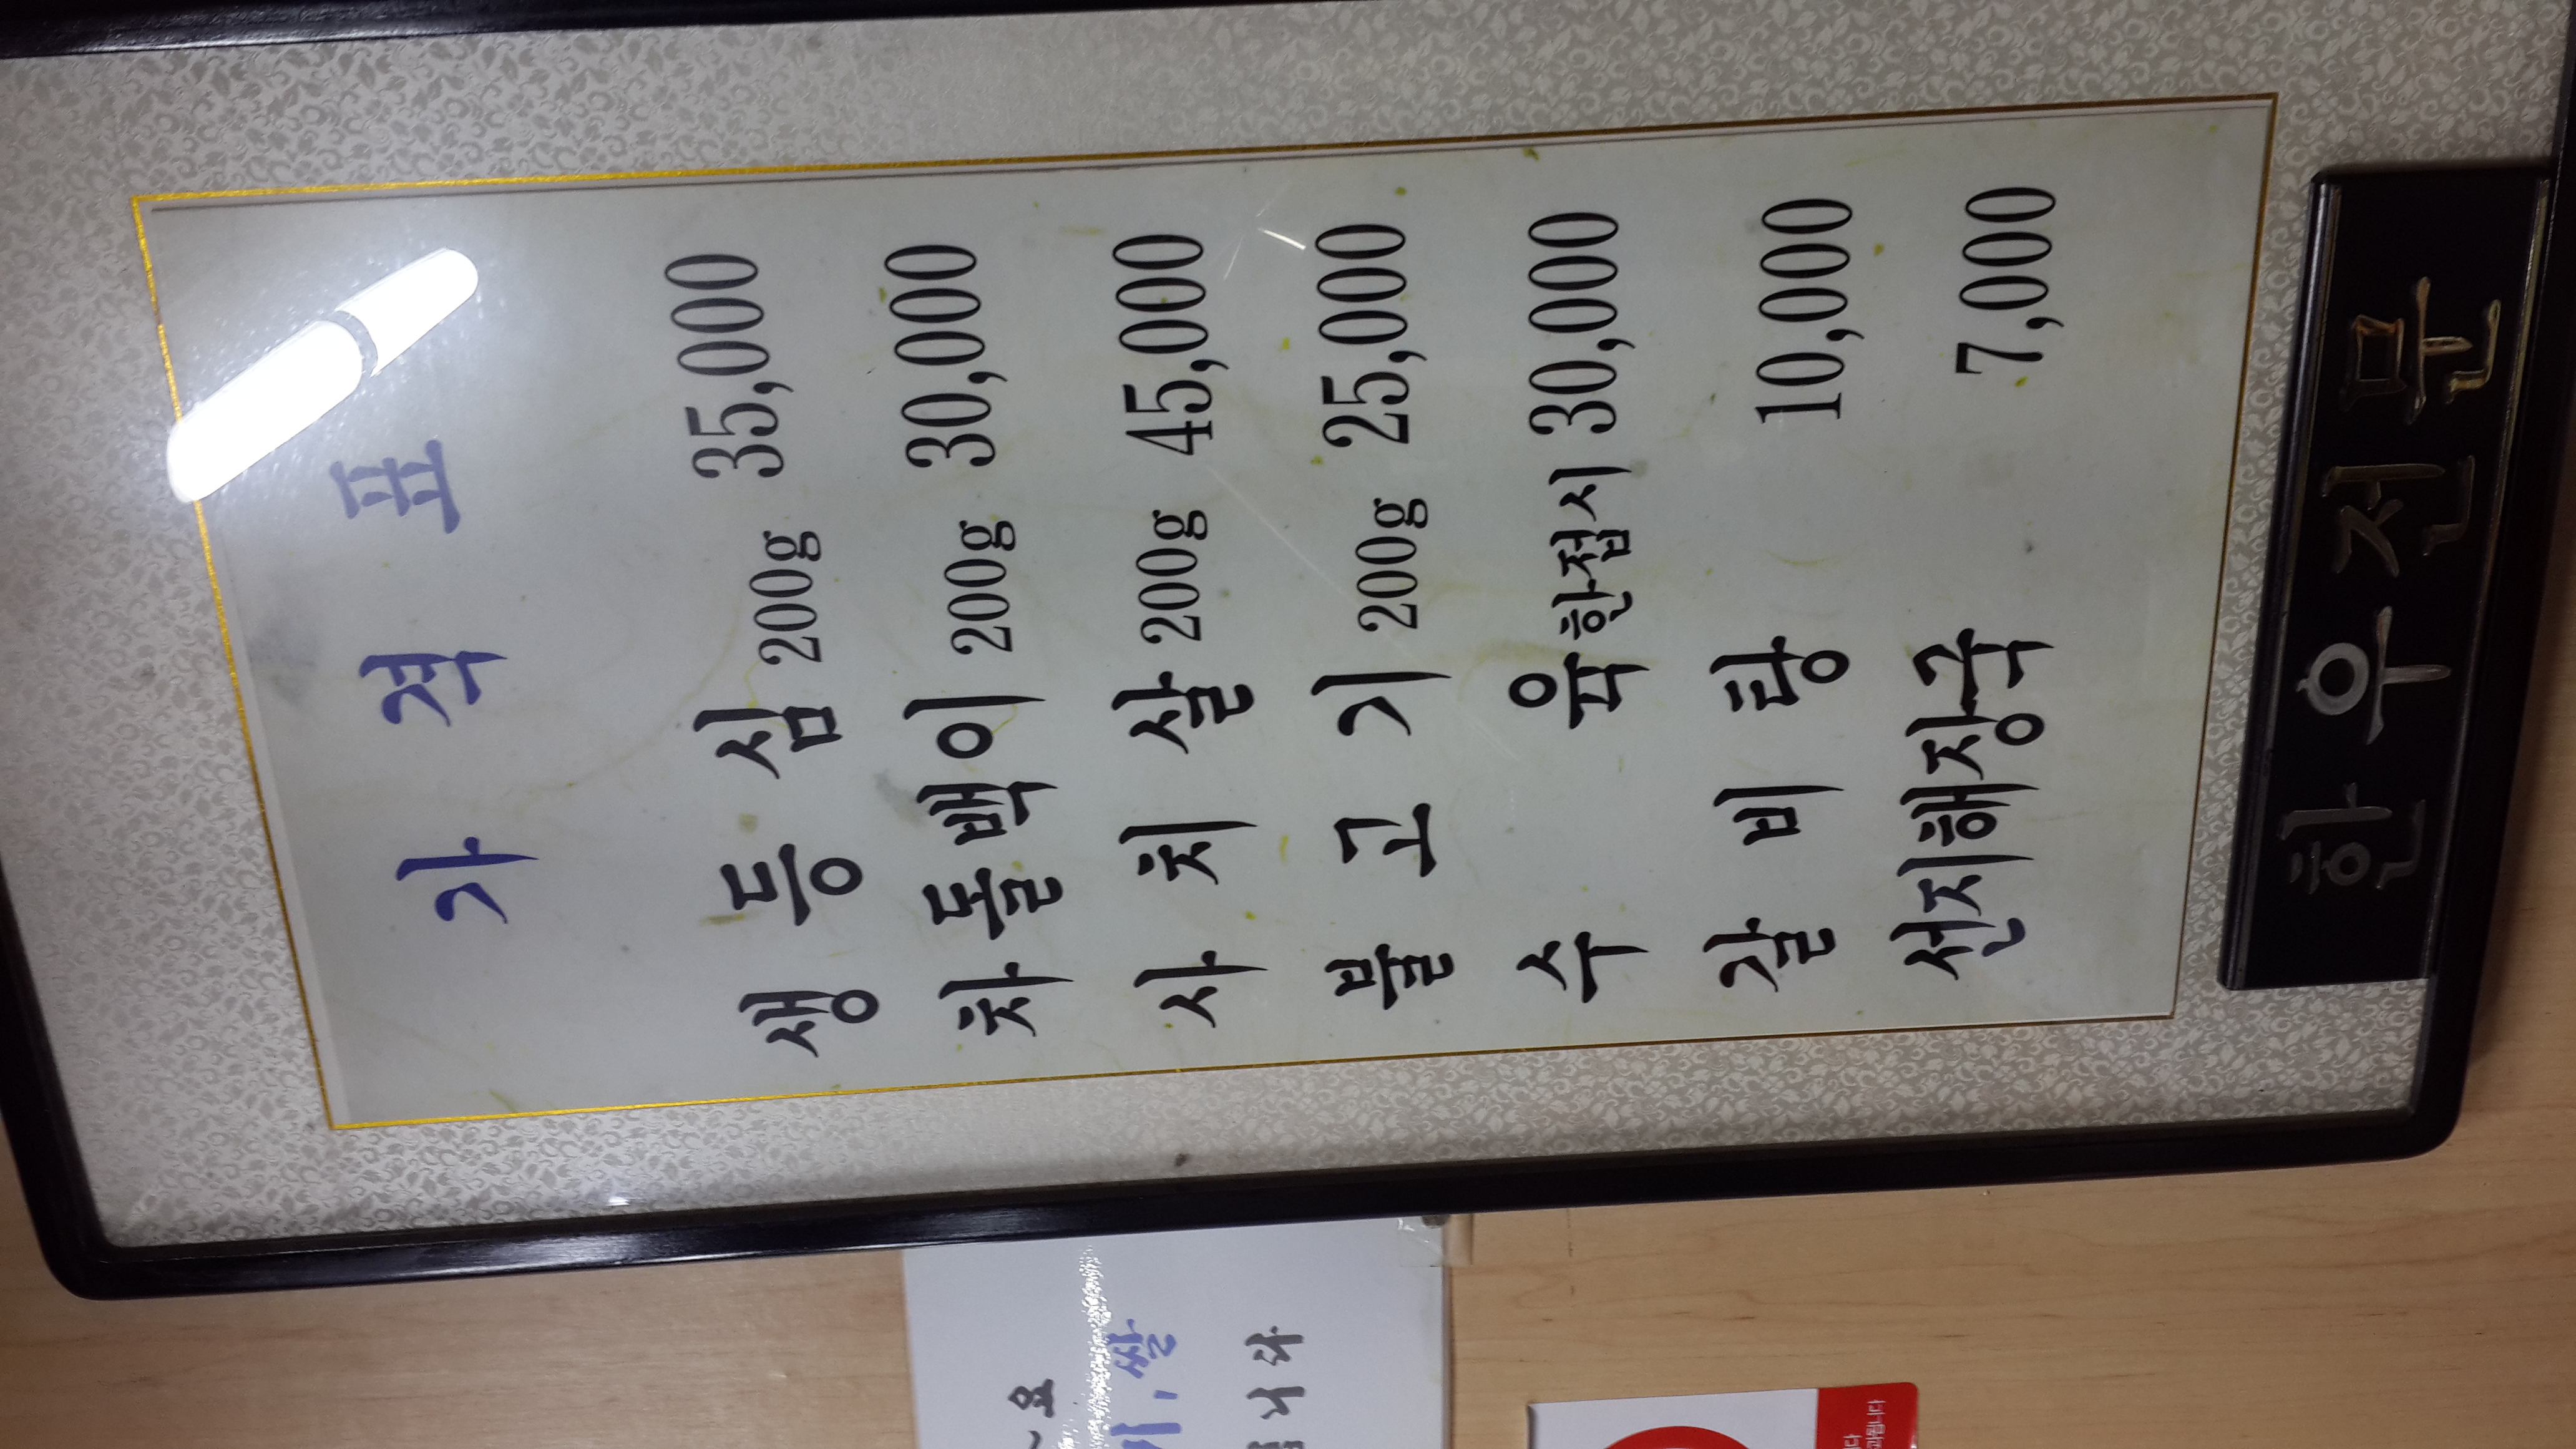 가 격 표
생 등 심 200g 35,000
차돌백이 200g 30,000
사 치 살 200g 45,000
불 고 기 200g 25,000
수 육 한접시 30,000
갈 비 탕 10,000
선지해장국 7,000
한우전문
~요
쌀
니다